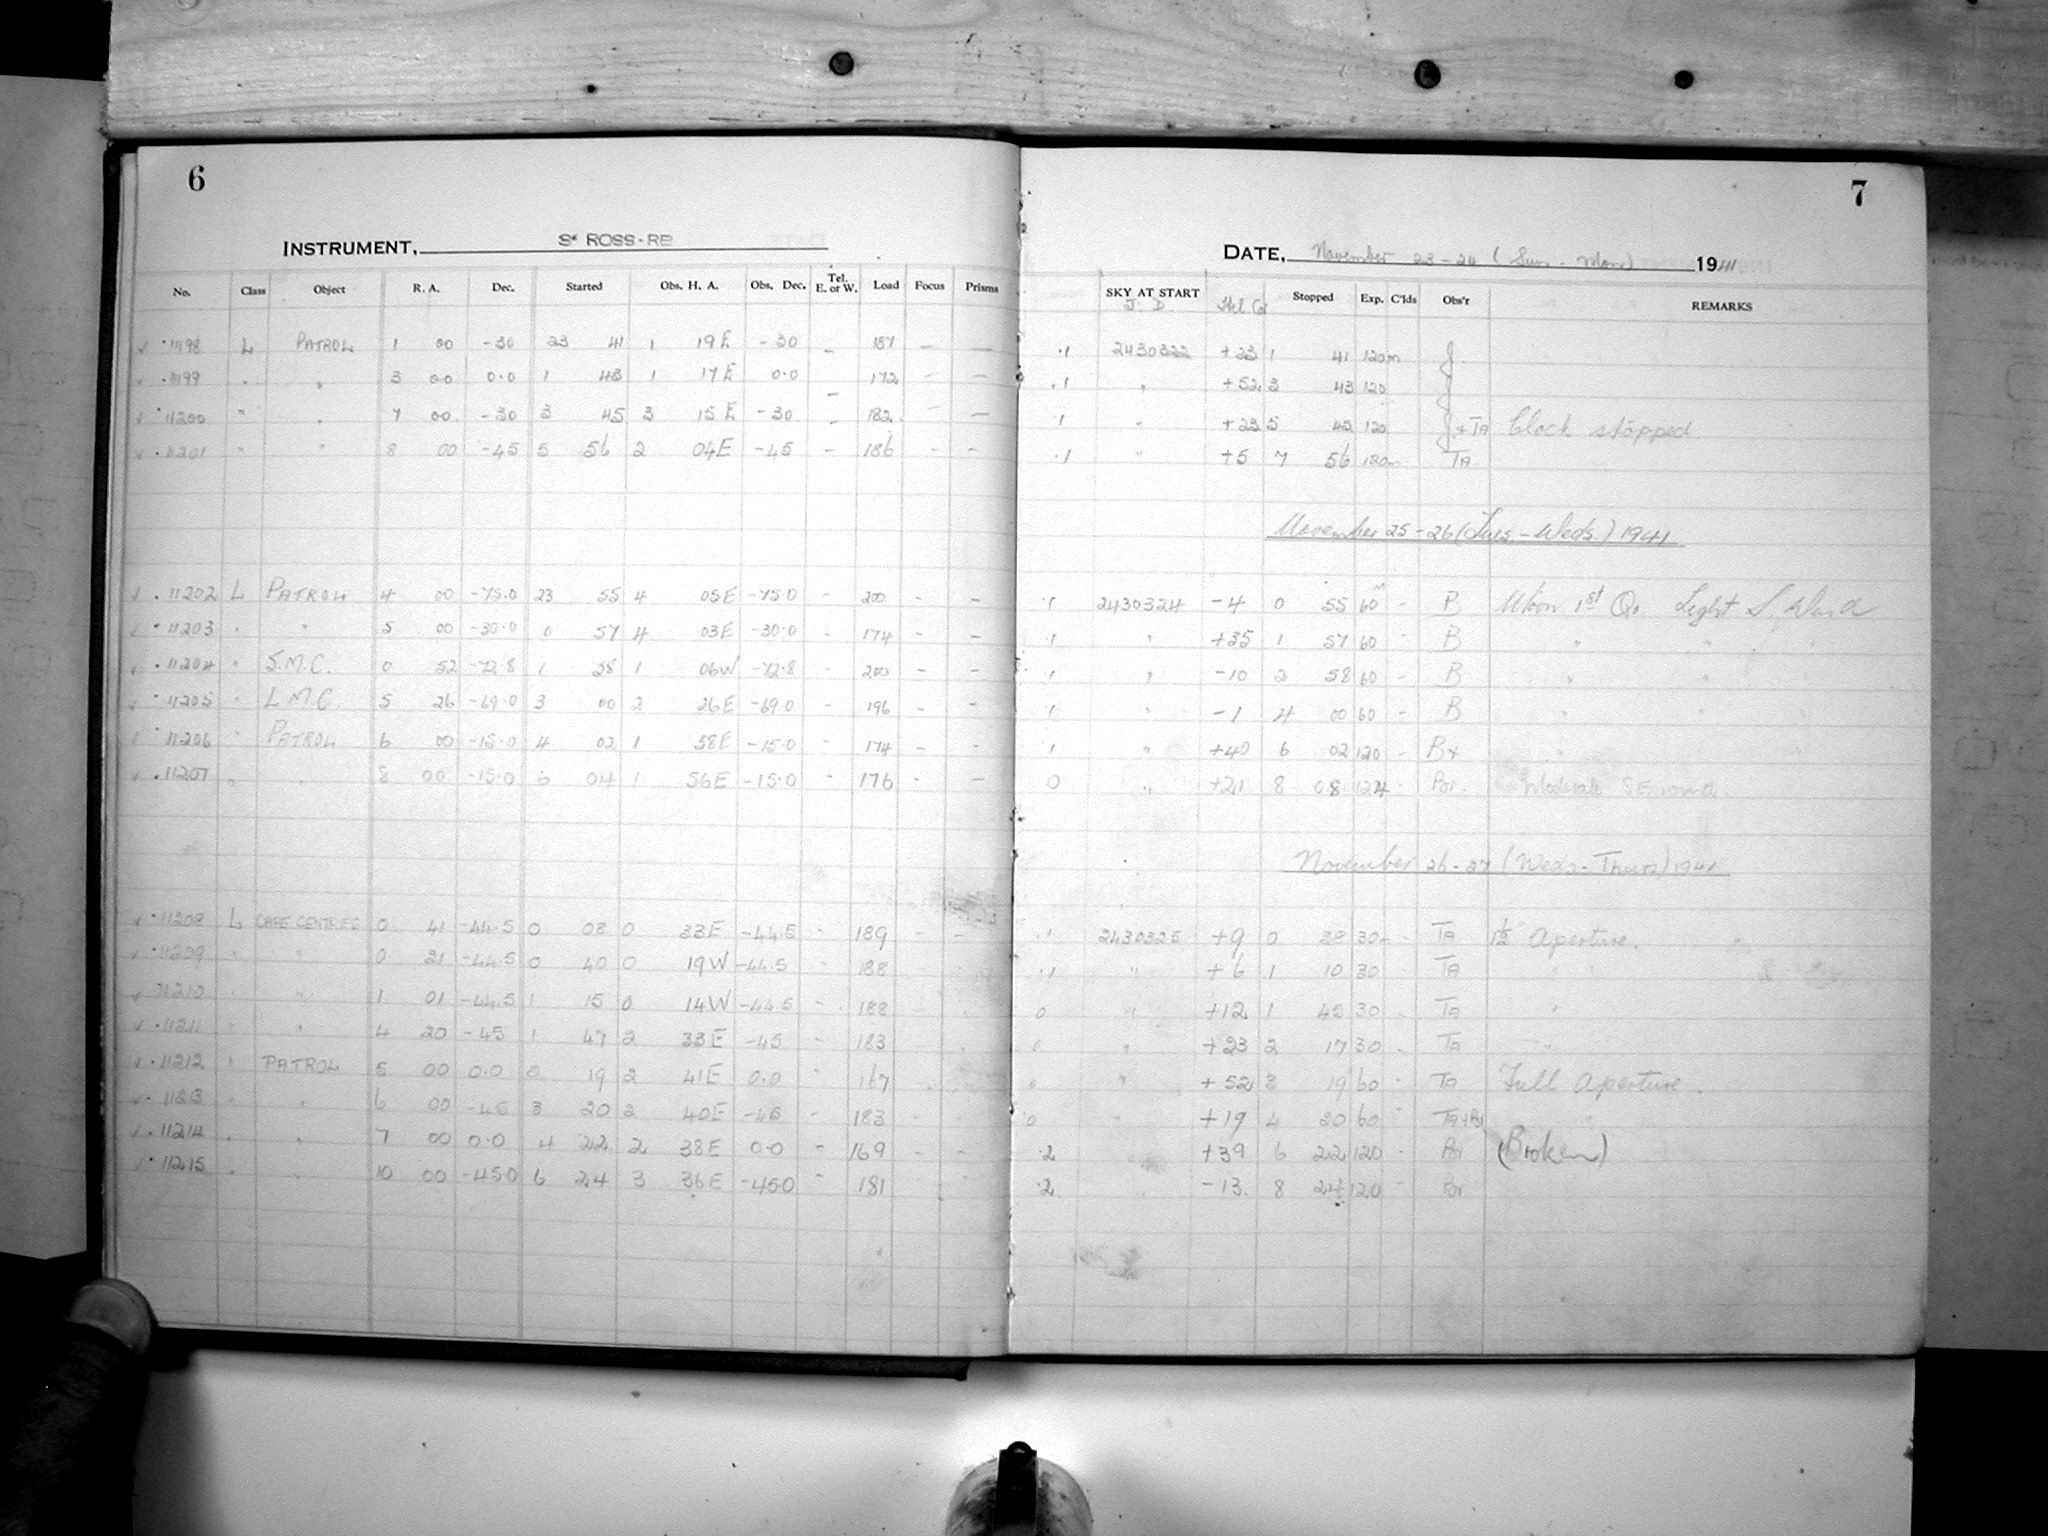 6
INSTRUMENT, 5" ROSS-RB
No. Class Object R. A. Dec. Started Obs. H. A. Obs. Dec. Tel. E. or W. Load Focus Prisms
11198 L PATROL 1 00 -30 23 41 1 19E -30 - 187 - -
11199 " " 3 00 0.0 1 43 1 17E 0.0 - 172 - -
11200 " " 7 00 -30 3 45 3 15E -30 - 182 - -
11201 " " 8 00 -45 5 56 2 04E -45 - 186 - -
11202 L PATROL 4 00 -75.0 23 55 4 05E -75.0 - 200 - -
11203 " " 5 00 -30.0 0 57 4 03E -30.0 - 174 - -
11204 " S.M.C. 0 52 -72.8 1 58 1 06W -72.8 - 200 - -
11205 " L.M.C. 5 26 -69.0 3 00 2 26E -69.0 - 196 - -
11206 " PATROL 6 00 -15.0 4 02 1 58E -15.0 - 174 - -
11207 " " 8 00 -15.0 6 04 1 56E -15.0 - 176 - -
11208 L CAPE CENTRES 0 41 -44.5 0 08 0 33E -44.5 - 189 - -
11209 " " 0 21 -44.5 0 40 0 19W -44.5 - 188 - -
11210 " " 1 01 -44.5 1 15 0 14W -44.5 - 188
11211 " " 4 20 -45 1 47 2 33E -45 - 183
11212 " PATROL 5 00 0.0 19 2 41E 0.0 - 167
11213 " " 6 00 -45 3 20 2 40E -45 - 183
11214 " " 7 00 0.0 4 22 2 38E 0.0 - 169 - -
11215 " " 10 00 -45.0 6 24 3 36E -450 - 181
7
DATE, November 23-24 (Sun - Mon) 1941
SKY AT START Stopped Exp. C'lds Obs'r REMARKS
J. D. Hel Cor
.1 2430322 +23 1 41 120m
.1 " +52 3 43 120
.1 " +23 5 45 120 + TA Clock stopped
.1 " +5 7 56 120m TA
November 25-26 (Tues.-Weds.) 1941
.1 2430324 -4 0 55 60m - B Moon 1st Qr. Light S. Wind
.1 " +35 1 57 60 - B " " "
.1 " -10 2 58 60 - B " "
.1 " -1 4 00 60 - B " " "
.1 " +40 6 02 120 - B+ " "
0 " +21 8 08 124 - Por. Moderate SE wind.
November 26-27 (Weds-Thurs) 1941
.1 2430325 +9 0 38 30m - TA 1½" Aperture.
.1 " +6 1 10 30 TA "
0 " +12 1 45 30 TA "
0 " +23 2 17 30 TA "
0 " +52 3 19 60 - TA Full Aperture.
0 " +19 4 20 60 - TA+Por "
.2 " +39 6 22 120 - Por (Broken)
.2 " -13 8 24 120 - Por